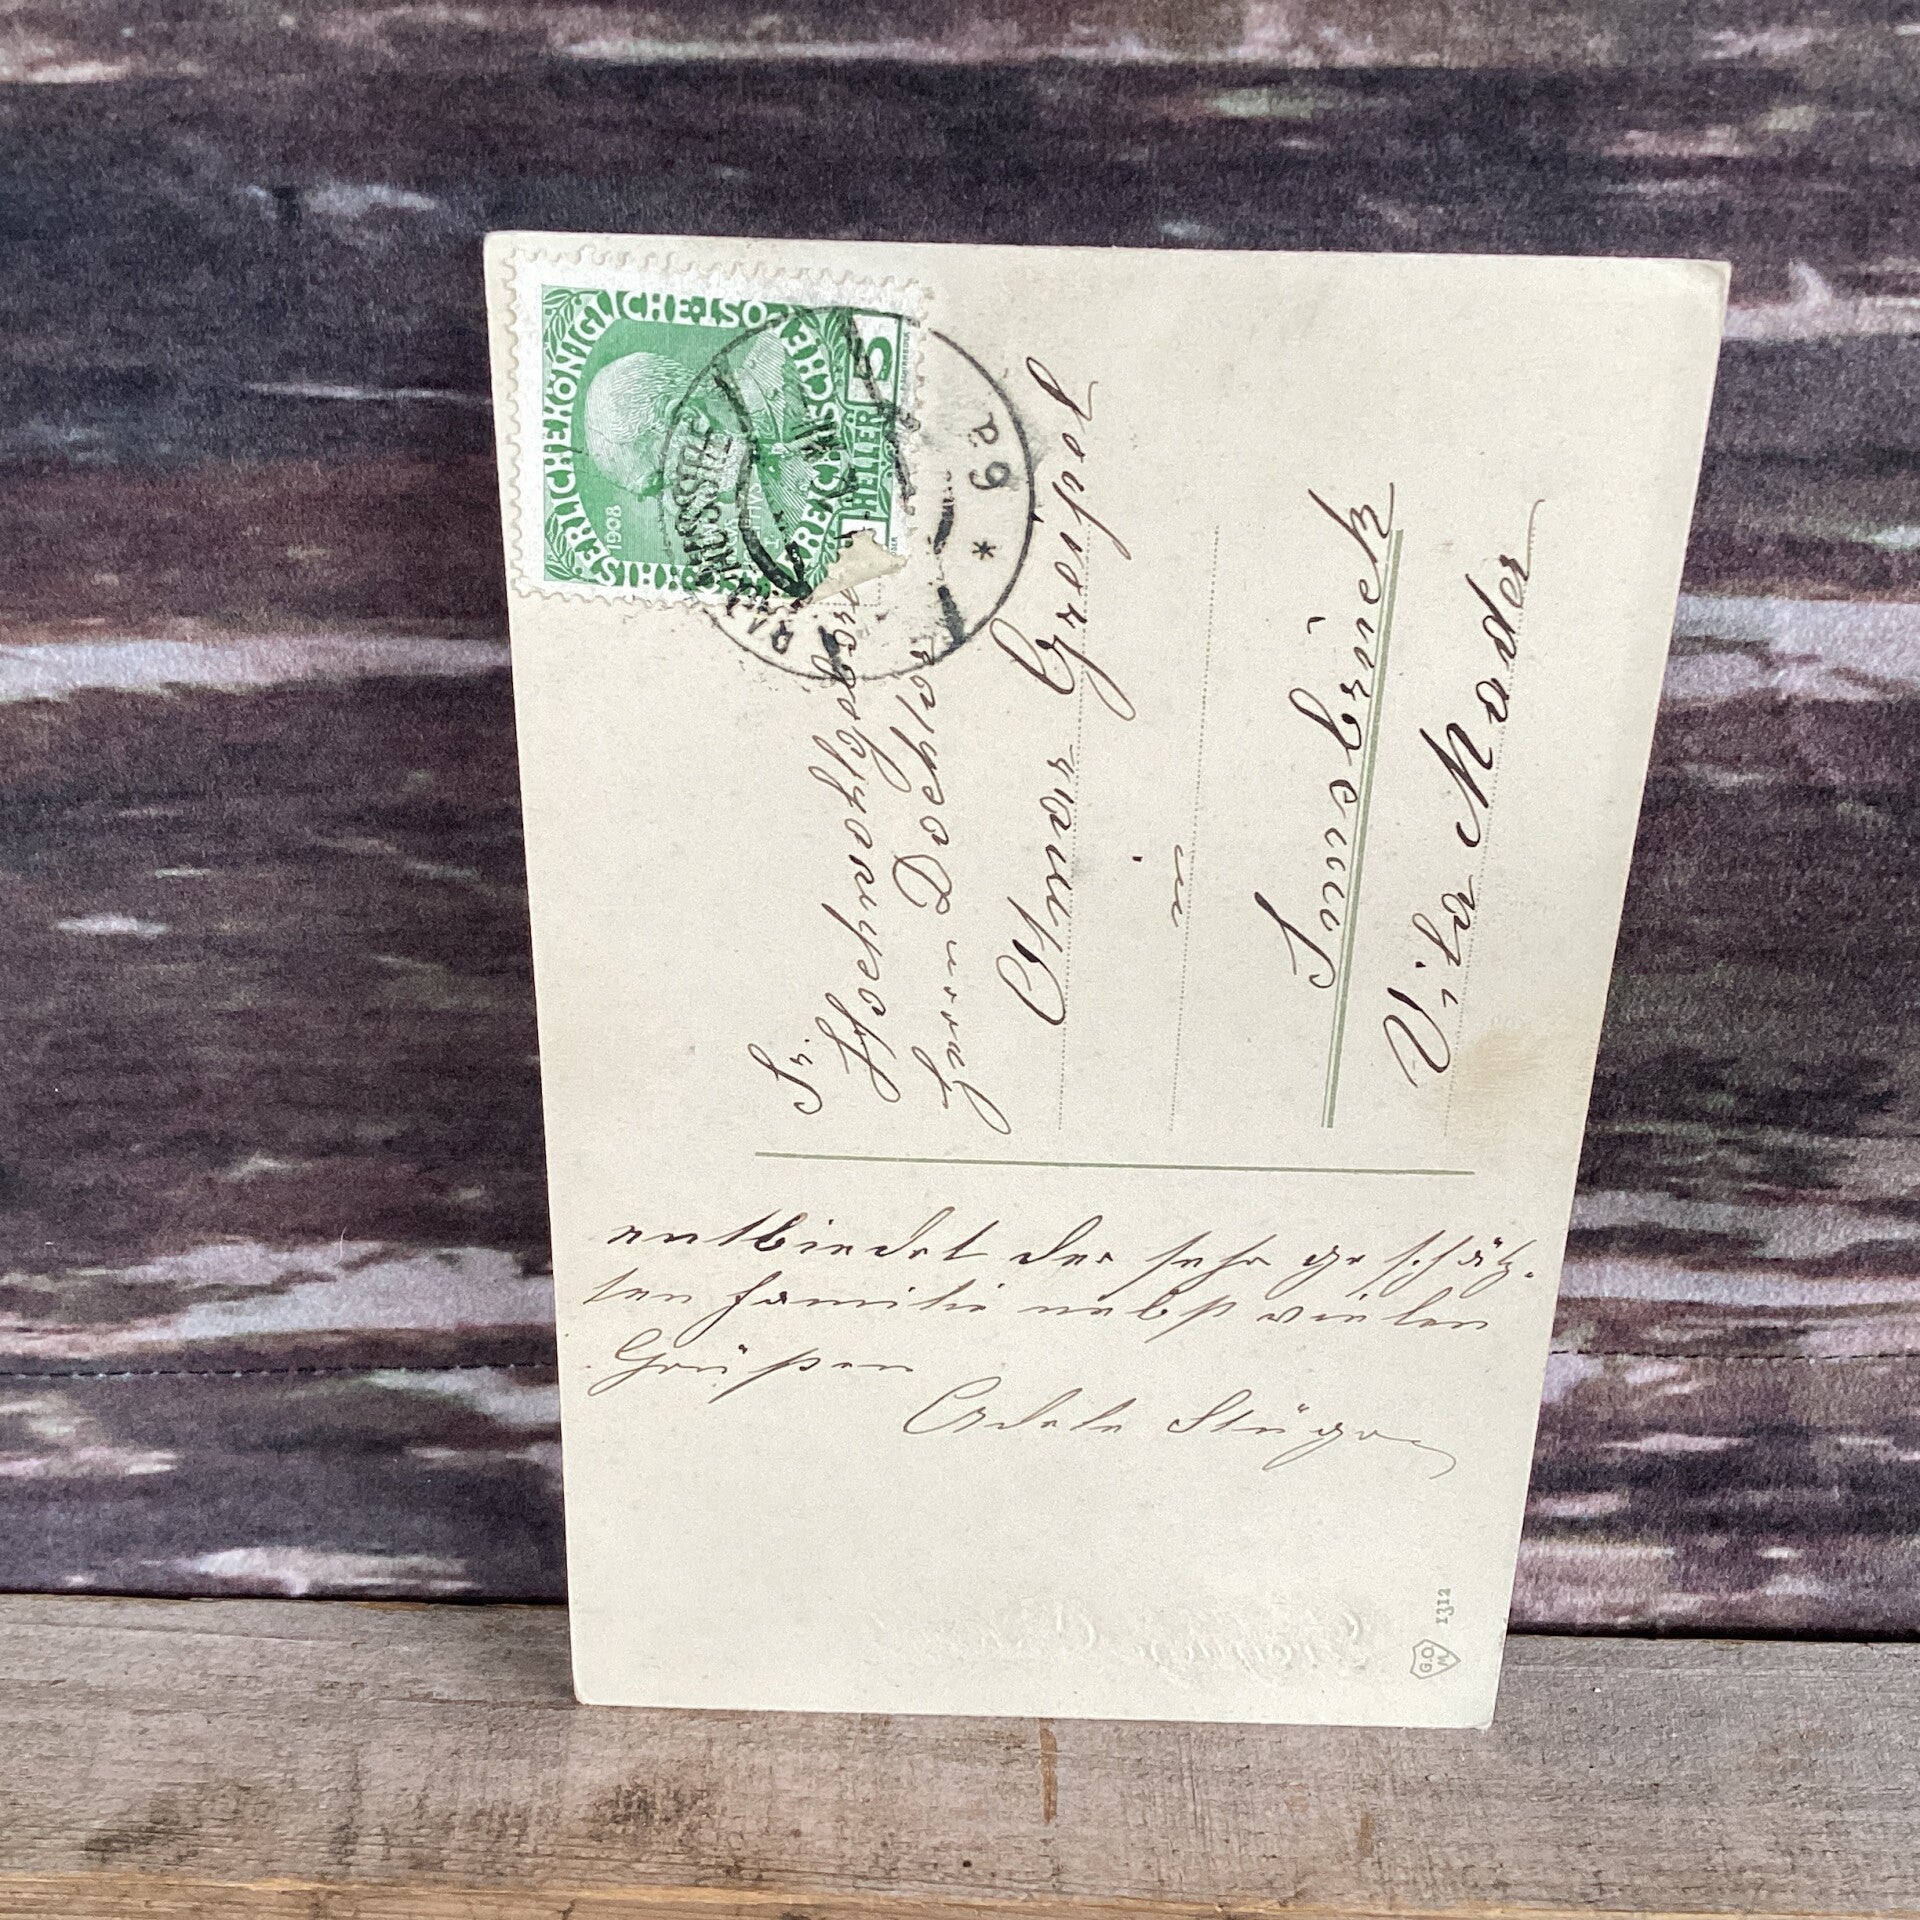 KAISERLICHE KÖNIGLICHE ÖSTERREICHISCHE POST
1908
5 HELLER 5
6a *
Sr.
Hochwohlgeboren
Herrn Doctor
Otmar
in
Vila Mader
entbiedet der sehr geschätz-
ten Familie nebst vielen
Grüßen
Adele
G.O.M
1312